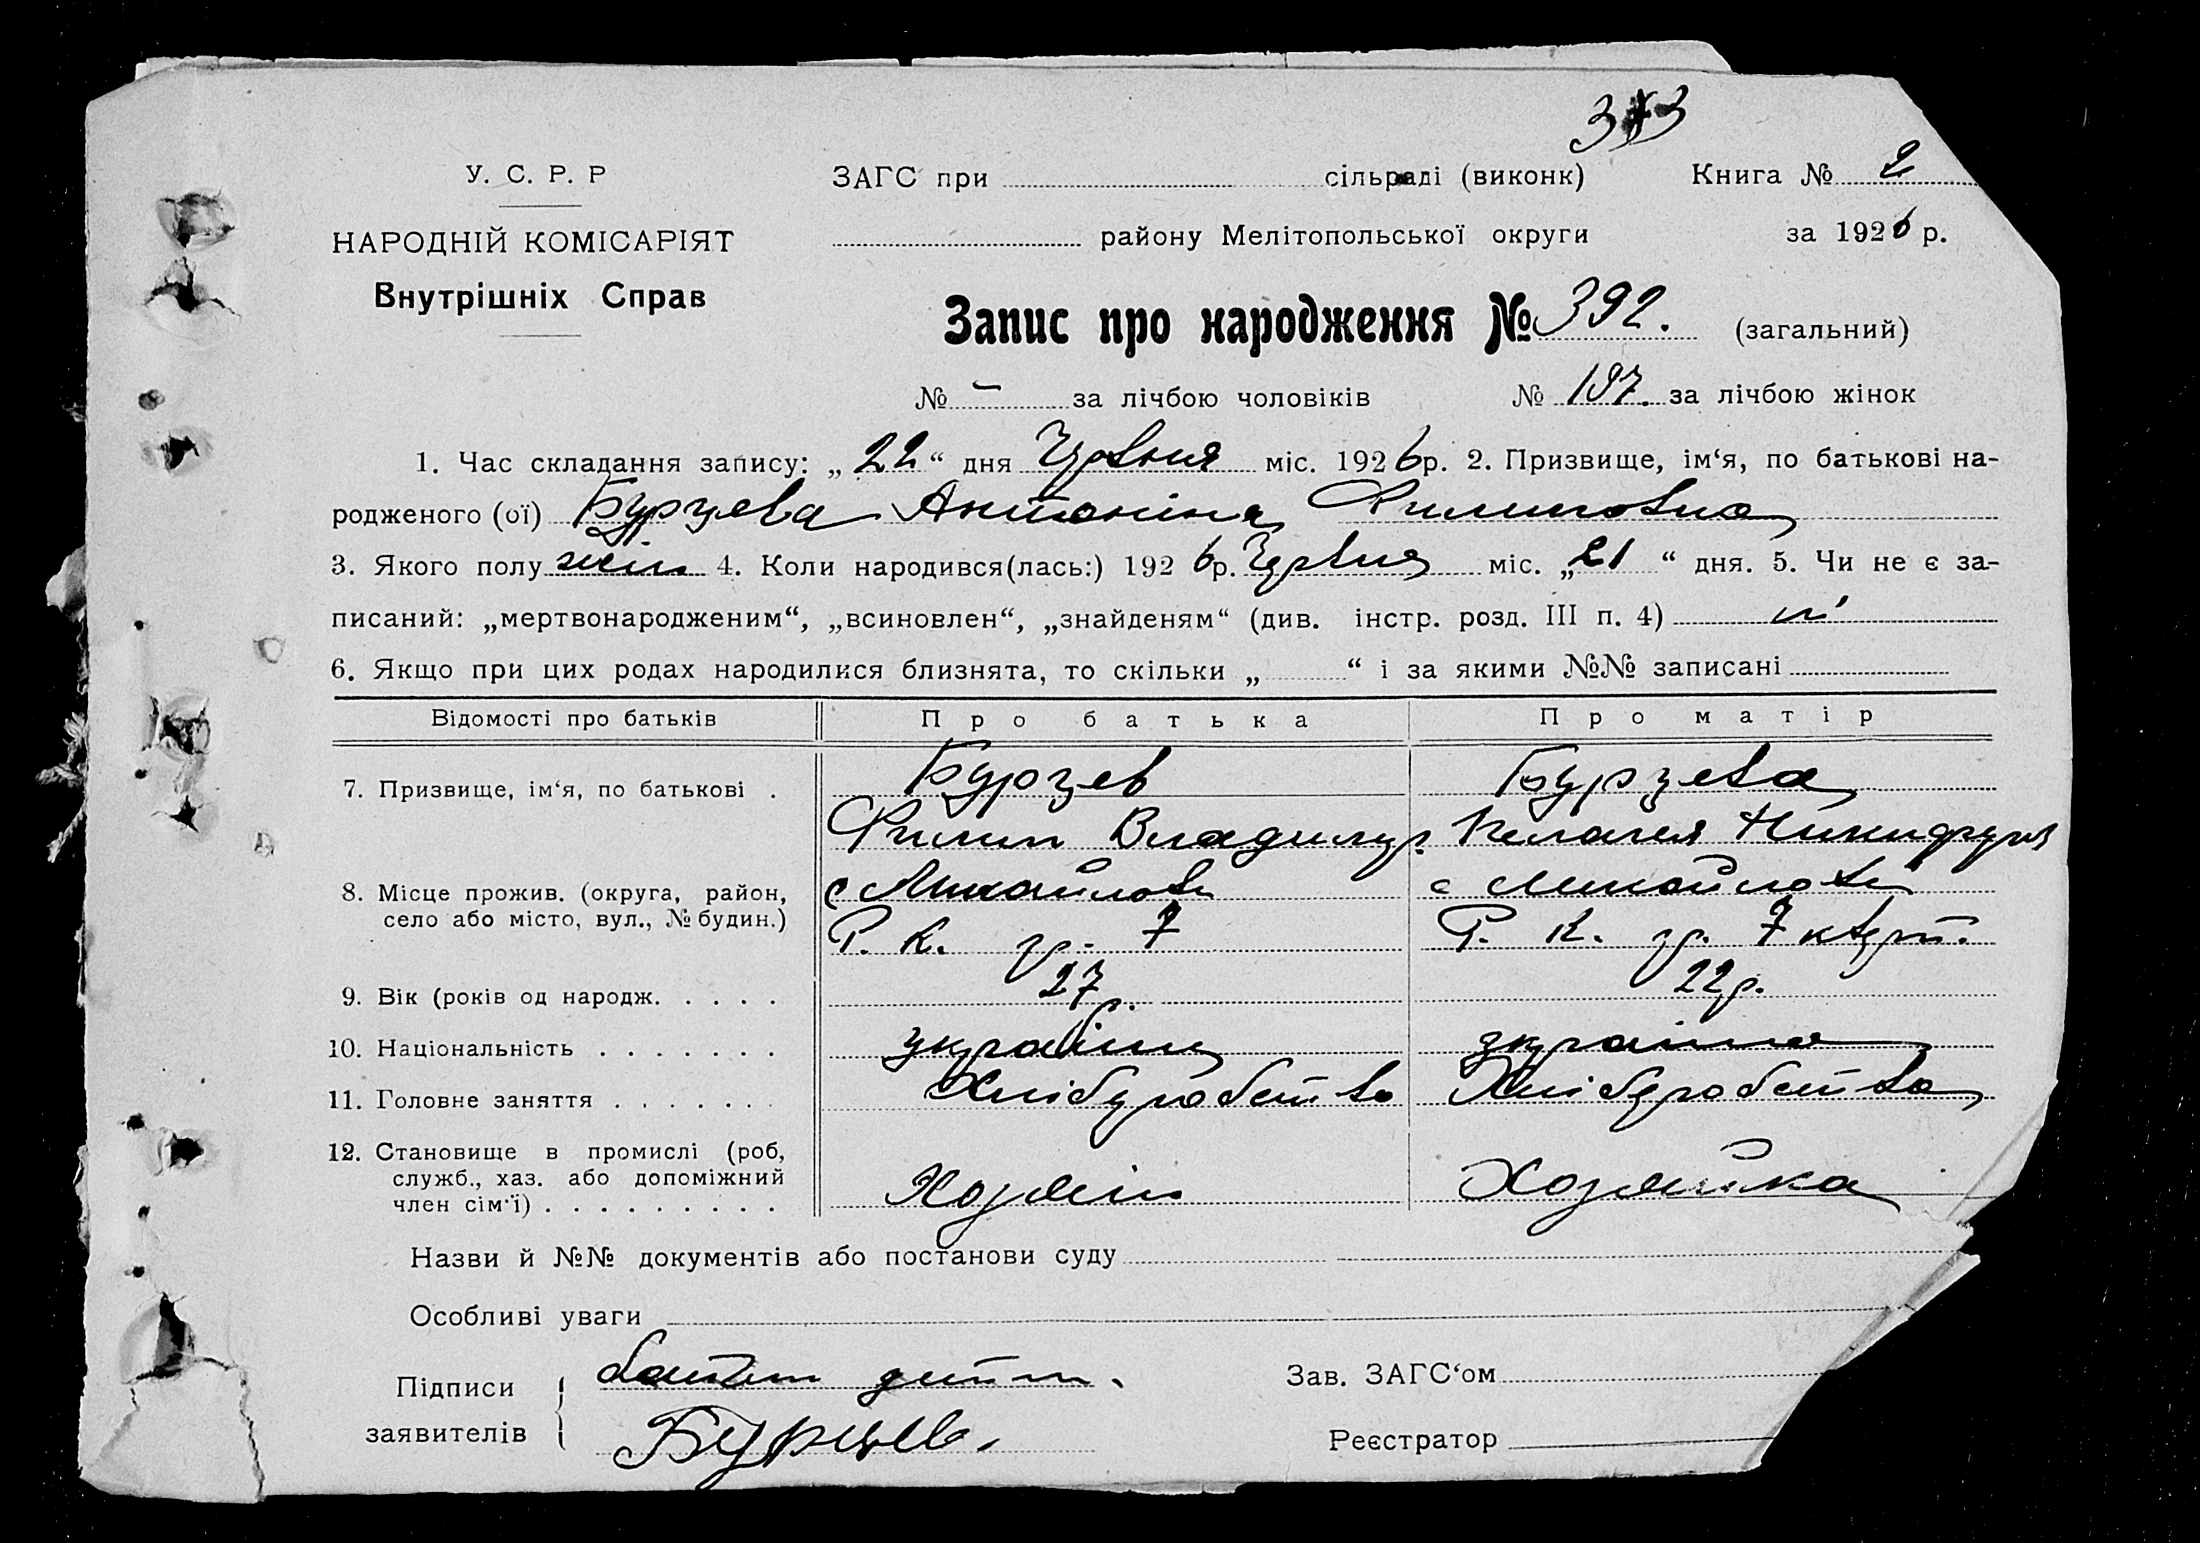 3 3
У. С. Р. Р
ЗАГС при сільраді (виконк) Книга № 2
НАРОДНІЙ КОМІСАРІЯТ
району Мелітопольської округи за 1926 р.
Внутрішніх Справ
Запис про народження № 392. (загальний)
№ – за лічбою чоловіків № 197. за лічбою жінок
1. Час складання запису: „22“ дня Червня міс. 1926 р. 2. Призвище, ім‘я, по батькові на-
родженого (ої) Бурцева Антоніна Филиповна
3. Якого полу жін 4. Коли народився(лась:) 1926 р. Червня міс. „21“ дня. 5. Чи не є за-
писаний: „мертвонародженим“, „всиновлен“, „знайденям“ (див. інстр. розд. III п. 4) ні
6. Якщо при цих родах народилися близнята, то скільки „ “ і за якими №№ записані
Відомості про батьків Про батька Про матір
7. Призвище, ім‘я, по батькові . Бурцев Бурцева
Филип Владимир. Пелагея
8. Місце прожив. (округа, район, с Михайловк с Михайловк
село або місто, вул., № будин.) Р. К. гр. 7 Р. К. гр. 7
9. Вік (років од народж. . . . . 27 р. 22 р.
10. Національність . . . . . . . українц українка
11. Головне заняття . . . . . . . Хліборобство Хліборобство
12. Становище в промислі (роб,
служб., хаз. або допоміжний Хозяїн Хозяйка
член сім‘ї) . . . . . . . . .
Назви й №№ документів або постанови суду
Особливі уваги
Підписи батько дитини. Зав. ЗАГС‘ом
заявителів Бурцев. Реєстратор